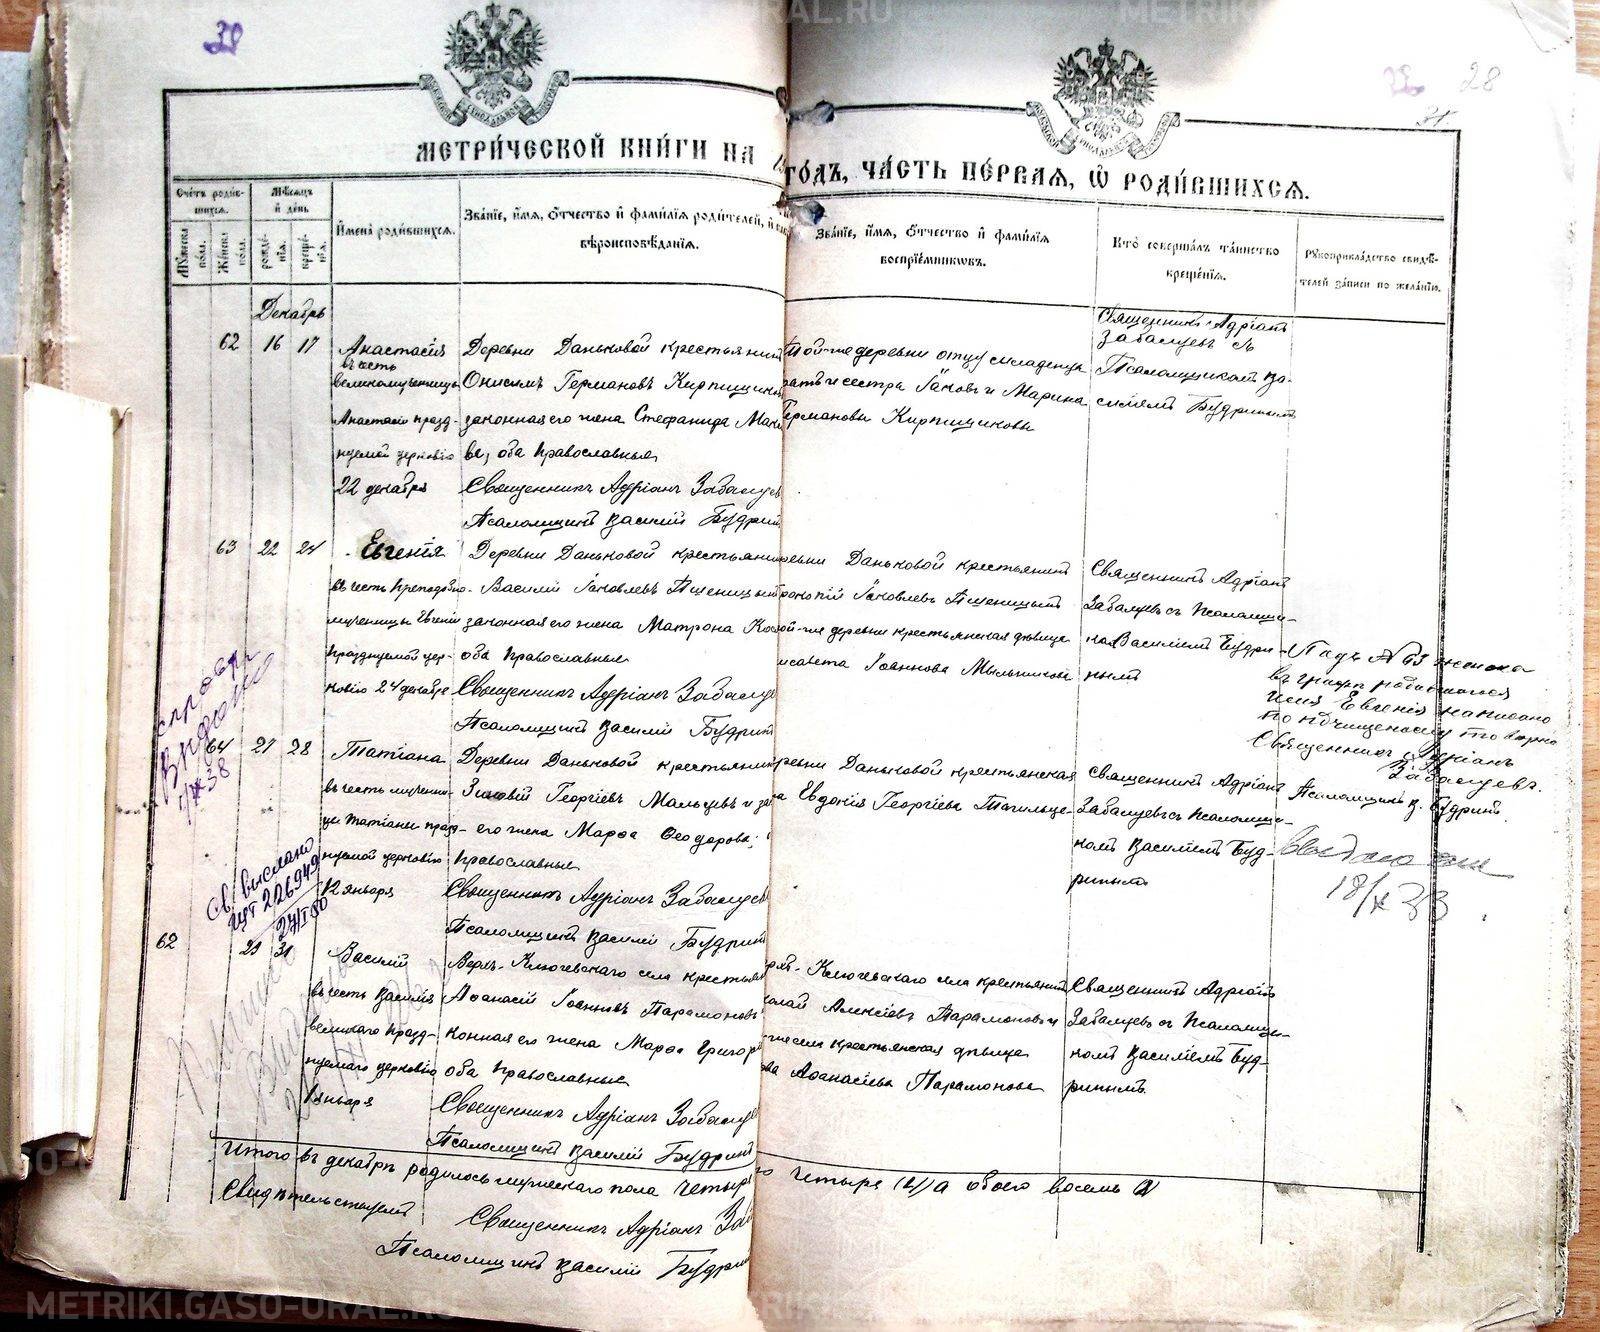 38
28
МЕТРИ́ЧЕСКОЙ КНИ́ГИ НА
ГО́ДЪ, ЧА́СТЬ ПЕ́РВАЯ, Ѡ РОДИ́ВШИХСЯ.
Сче́тъ роди́в-
шихся.
Мѣ́сяцъ
и де́нь
Му́жеска
по́ла.
Же́нска
по́ла.
рожде́-
нія.
креще́-
нія.
Имена̀ роди́вшихся.
Зва́ніе, и́мя, о́тчество и фами́лія роди́телей, и
вѣроисповѣ́данія.
Зва́ніе, и́мя, о́тчество и фами́лія
воспріе́мниковъ.
Кто̀ соверша́лъ та́инство
креще́нія.
Рукоприкла́дство свидѣ́-
телей за́писи по жела́нію.
Декабрь
62 16 17
Анастасія
въ честь
великомученицы
Анастасіи празд-
нуемой церковію
22 декабря
Деревни Даньковой крестьянинъ
Онисимъ Германовъ Кирпищиковъ
законная его жена Стефанида
оба православные
Священникъ Адріанъ Забалуев
Псаломщикъ Василій Будрин
Той-же деревни отцу младенца
братъ и сестра Іаковъ и Марина
Германовы Кирпищиковы
Священникъ Адріанъ
Забалуевъ съ
Псаломщикомъ Ва-
силіемъ Будринымъ
63 22 24
Евгенія
въ честь преподобно-
мученицы Евгеніи
празднуемой цер-
ковію 24 декабря
Деревни Даньковой крестьянин
Василій Іаковлевъ Пшеницын
законная его жена Матрона
оба православные
Священникъ Адріанъ Забалуе
Псаломщикъ Василій Будрин
ревни Даньковой крестьянинъ
рокопій Іаковлевъ Пшеницынъ
той-же деревни крестьянская дѣвица
исавета Іоаннова Мыльникова
Священникъ Адріанъ
Забалуевъ съ псаломщи-
комъ Василіемъ Будри-
нымъ
Подъ № 63 женска
въ графѣ родившихся
имя Евгенія написано
по подчищеному то вѣрно
Священникъ Адріанъ
Забалуевъ.
Псаломщикъ В. Будринъ.
64 27 28
Татіана
въ честь мучени-
цы Татіаны празд-
нуемой церковію
12 января
Деревни Даньковой крестьянин
Зиновій Георгіевъ Мальцевъ и за
его жена Марѳа Ѳеодорова,
православные
Священникъ Адріанъ Забалуев
Псаломщикъ Василій Будрин
ревни Даньковой крестьянская
а Евдокія Георгіева
Священникъ Адріанъ
Забалуевъ съ псаломщи-
комъ Василіемъ Буд-
ринымъ
18/X 33
св. выслано
226949
62 29 31
Василій
въ честь Василія
великаго празд-
нуемаго церковію
1 января
Верх-Ключевскаго села крестьян
Аѳанасій Іоанновъ Парамоновъ
конная его жена Марѳа Григор
оба православные
Священникъ Адріанъ Забалуе
Псаломщикъ Василій Будрин
ерхъ-Ключевскаго села крестьянинъ
колай Алексіевъ Парамоновъ и
же села крестьянская дѣвица
ва Аѳанасіева Парамонова
Священникъ Адріанъ
Забалуевъ съ псаломщи-
комъ Василіемъ Буд-
ринымъ.
Итого въ декабрѣ родилось мужескаго пола четыре
го четыре (4) а обоего восемь
Свидѣтельствуемъ
Священникъ Адріанъ Заб
Псаломщикъ Василій Будрин
METRIKI.GASO-URAL.RU